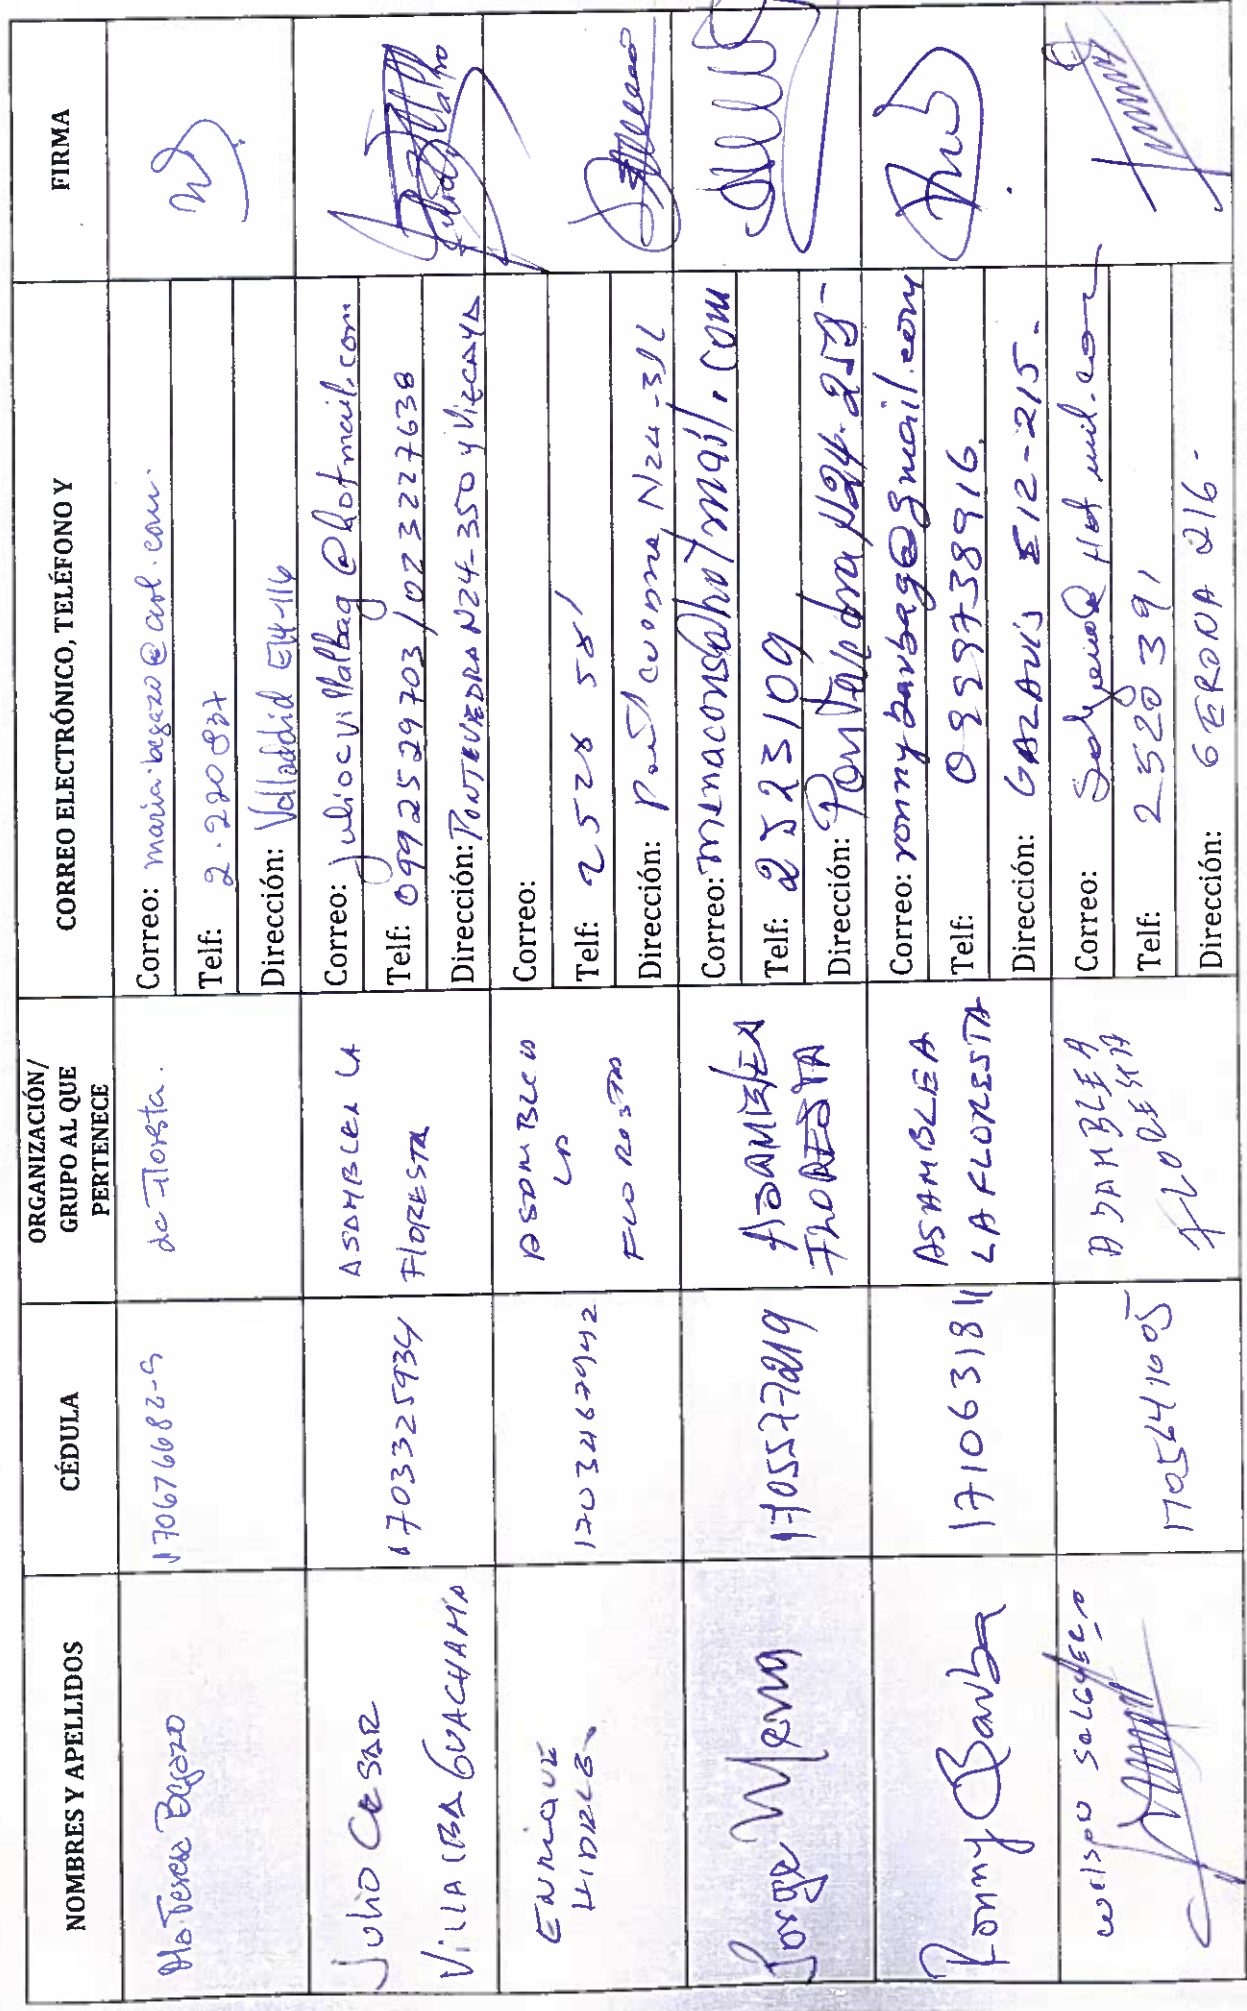 NOMBRES Y APELLIDOS
CÉDULA
ORGANIZACIÓN/
GRUPO AL QUE
PERTENECE
CORREO ELECTRÓNICO, TELÉFONO Y
FIRMA
Ma Teresa Begazo
170676682-9
de Floresta.
Correo: maria.begazo@aol.com
Telf: 2.220827
Dirección: Valladolid E14-116
Julio Cesar
Villalba Guachamin
1703325934
Asamblea La
Floresta
Correo: juliocvillalbag@hotmail.com
Telf: 0992529703/023227638
Dirección: Pontevedra N24-350 y Vizcaya
Enrique
1703467942
Asamblea
La
Floresta
Correo:
Telf: 2528581
Dirección: N24-
Jorge Mena
1705577219
Asamblea
Floresta
Correo: menacons@hotmail.com
Telf: 2523109
Dirección: Pontevedra N24-255-
Ronny Barba
1710631811
ASAMBLEA
LA FLORESTA
Correo: ronnybarbag@gmail.com
Telf: 099738916
Dirección: GALAVIS E12-215-
Salguero
1705641605
ASAMBLEA
FLORESTA
Correo:
Telf: 2520391
Dirección: GERONA 216-